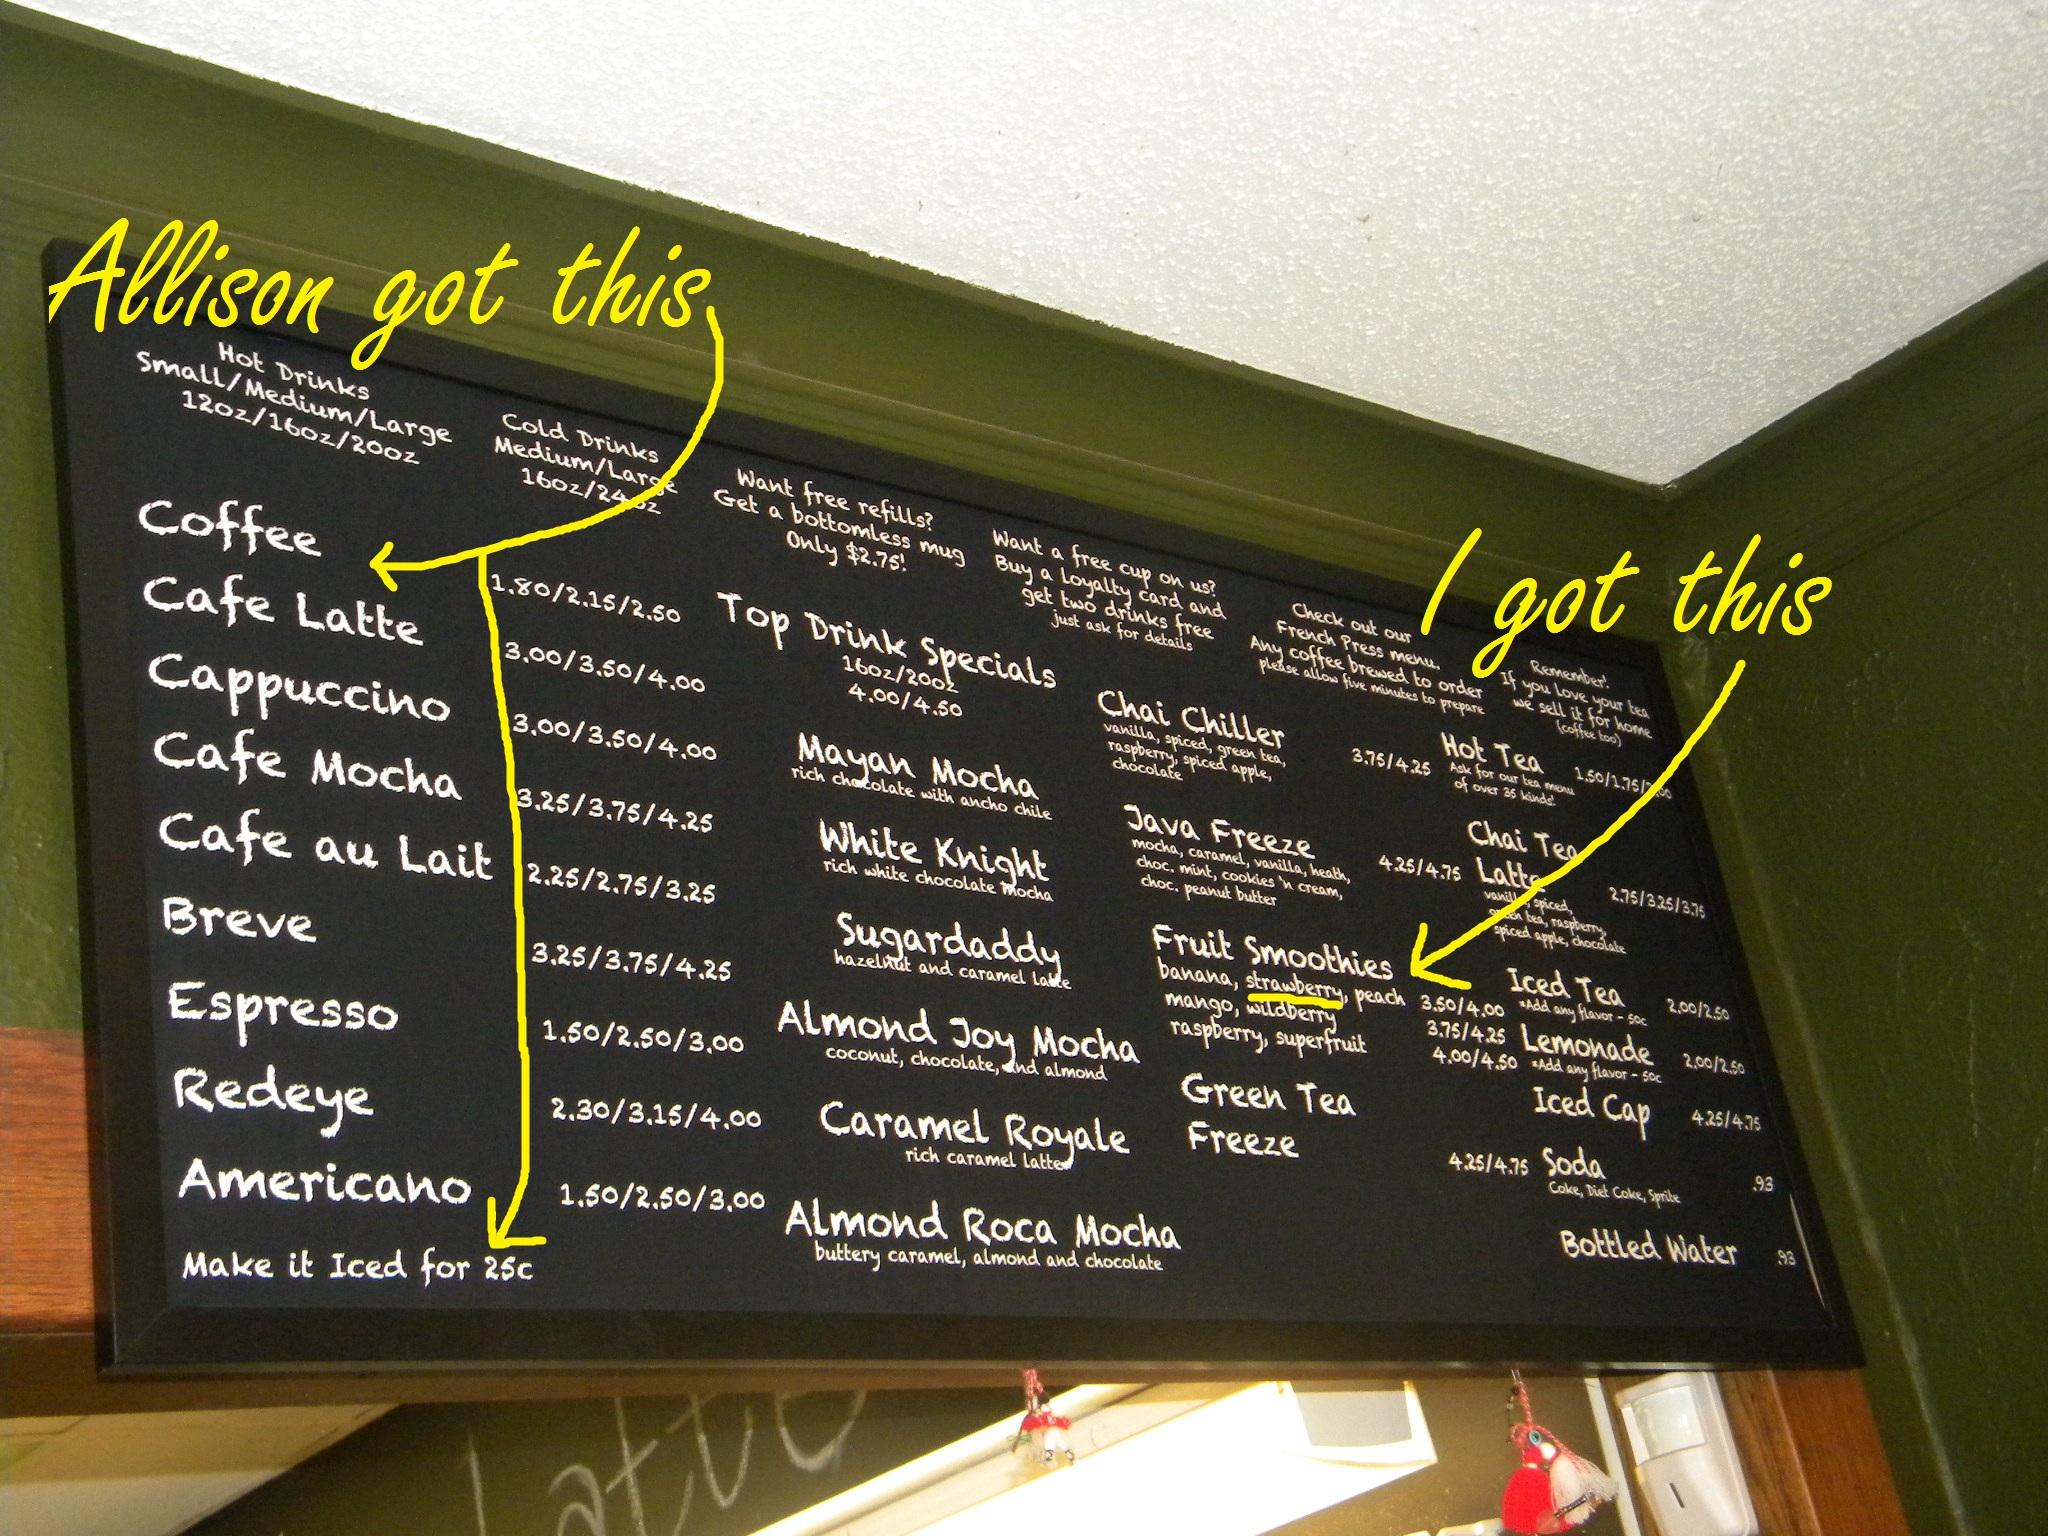 Allison got this
I got this
Hot Drinks
Small/Medium/Large
12oz/16oz/20oz
Cold Drinks
Medium/Large
16oz/24oz
Want free refills?
Get a bottomless mug
Only $2.75!
Want a free cup on us?
Buy a loyalty card and
get two drinks free
just ask for details
Check out our
French Press menu.
Any coffee brewed to order
please allow five minutes to prepare
Remember!
If you love your tea
we sell it for home
(coffee too)
Coffee 1.80/2.15/2.50
Cafe Latte 3.00/3.50/4.00
Cappuccino 3.00/3.50/4.00
Cafe Mocha 3.25/3.75/4.25
Cafe au Lait 2.25/2.75/3.25
Breve 3.25/3.75/4.25
Espresso 1.50/2.50/3.00
Redeye 2.30/3.15/4.00
Americano 1.50/2.50/3.00
Make it Iced for 25c
Top Drink Specials
16oz/20oz
4.00/4.50
Mayan Mocha
rich chocolate with ancho chile
White Knight
rich white chocolate mocha
Sugardaddy
hazelnut and caramel latte
Almond Joy Mocha
coconut, chocolate, and almond
Caramel Royale
rich caramel latte
Almond Roca Mocha
buttery caramel, almond and chocolate
Chai Chiller 3.75/4.25
vanilla, spiced, green tea,
raspberry, spiced apple,
chocolate
Java Freeze 4.25/4.75
mocha, caramel, vanilla, heath,
choc. mint, cookies 'n cream,
choc. peanut butter
Fruit Smoothies
banana, strawberry, peach 3.50/4.00
mango, wildberry 3.75/4.25
raspberry, superfruit 4.00/4.50
Green Tea
Freeze 4.25/4.75
Hot Tea 1.50/1.75/2.00
Ask for our tea menu
of over 35 kinds!
Chai Tea
Latte 2.75/3.25/3.75
vanilla, spiced,
green tea, raspberry,
spiced apple, chocolate
Iced Tea 2.00/2.50
*Add any flavor - 50c
Lemonade 2.00/2.50
*Add any flavor - 50c
Iced Cap 4.25/4.75
Soda .93
Coke, Diet Coke, Sprite
Bottled Water .93
Latte